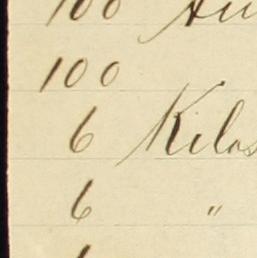 100
100
6 Kilos
6 "